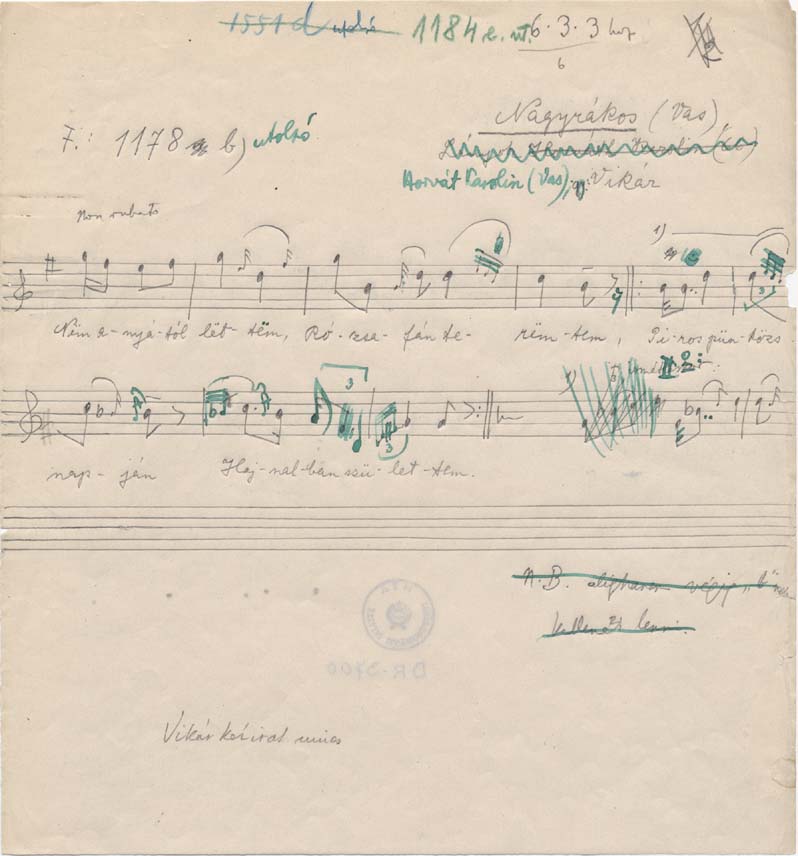 1551 d utolsó 1184 e. ut. 6. 3. 3
6
F.: 1178 b) utolsó
Nagyrákos (Vas),
Horvát Karolin (Vas), Vikár
Non rubato
1)
3
Nëm a-nyá-tól lët-tëm, Ró-zsa-fán te-rëm-tem, Pi-ros pün-közs
1) 2:
3
3
nap-ján Haj-nal-ban szü-let-tem.
N.B. végig
lenni.
DR-3700
Vikár kézirat nincs